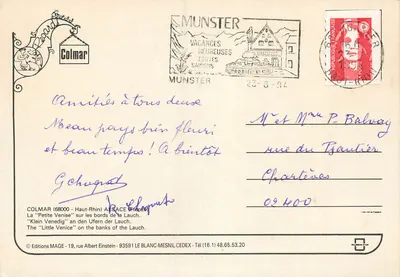 Colmar
MUNSTER
VACANCES
HEUREUSES
TOUTES
SAISONS
MUNSTER
23-8-94
Amitiés à tous deux
Beau pays bien fleuri
et beau temps! A bientôt
COLMAR (68000 - Haut-Rhin) ALSACE
La "Petite Venise" sur les bords de la Lauch.
"Klein Venedig" an den Ufern der Lauch.
The "Little Venice" on the banks of the Lauch.
Mr et Mme P. Balvay
rue du
02400
© Editions MAGE - 19, rue Albert Einstein - 93591 LE BLANC-MESNIL CEDEX - Tél (16.1) 48.65.53.20